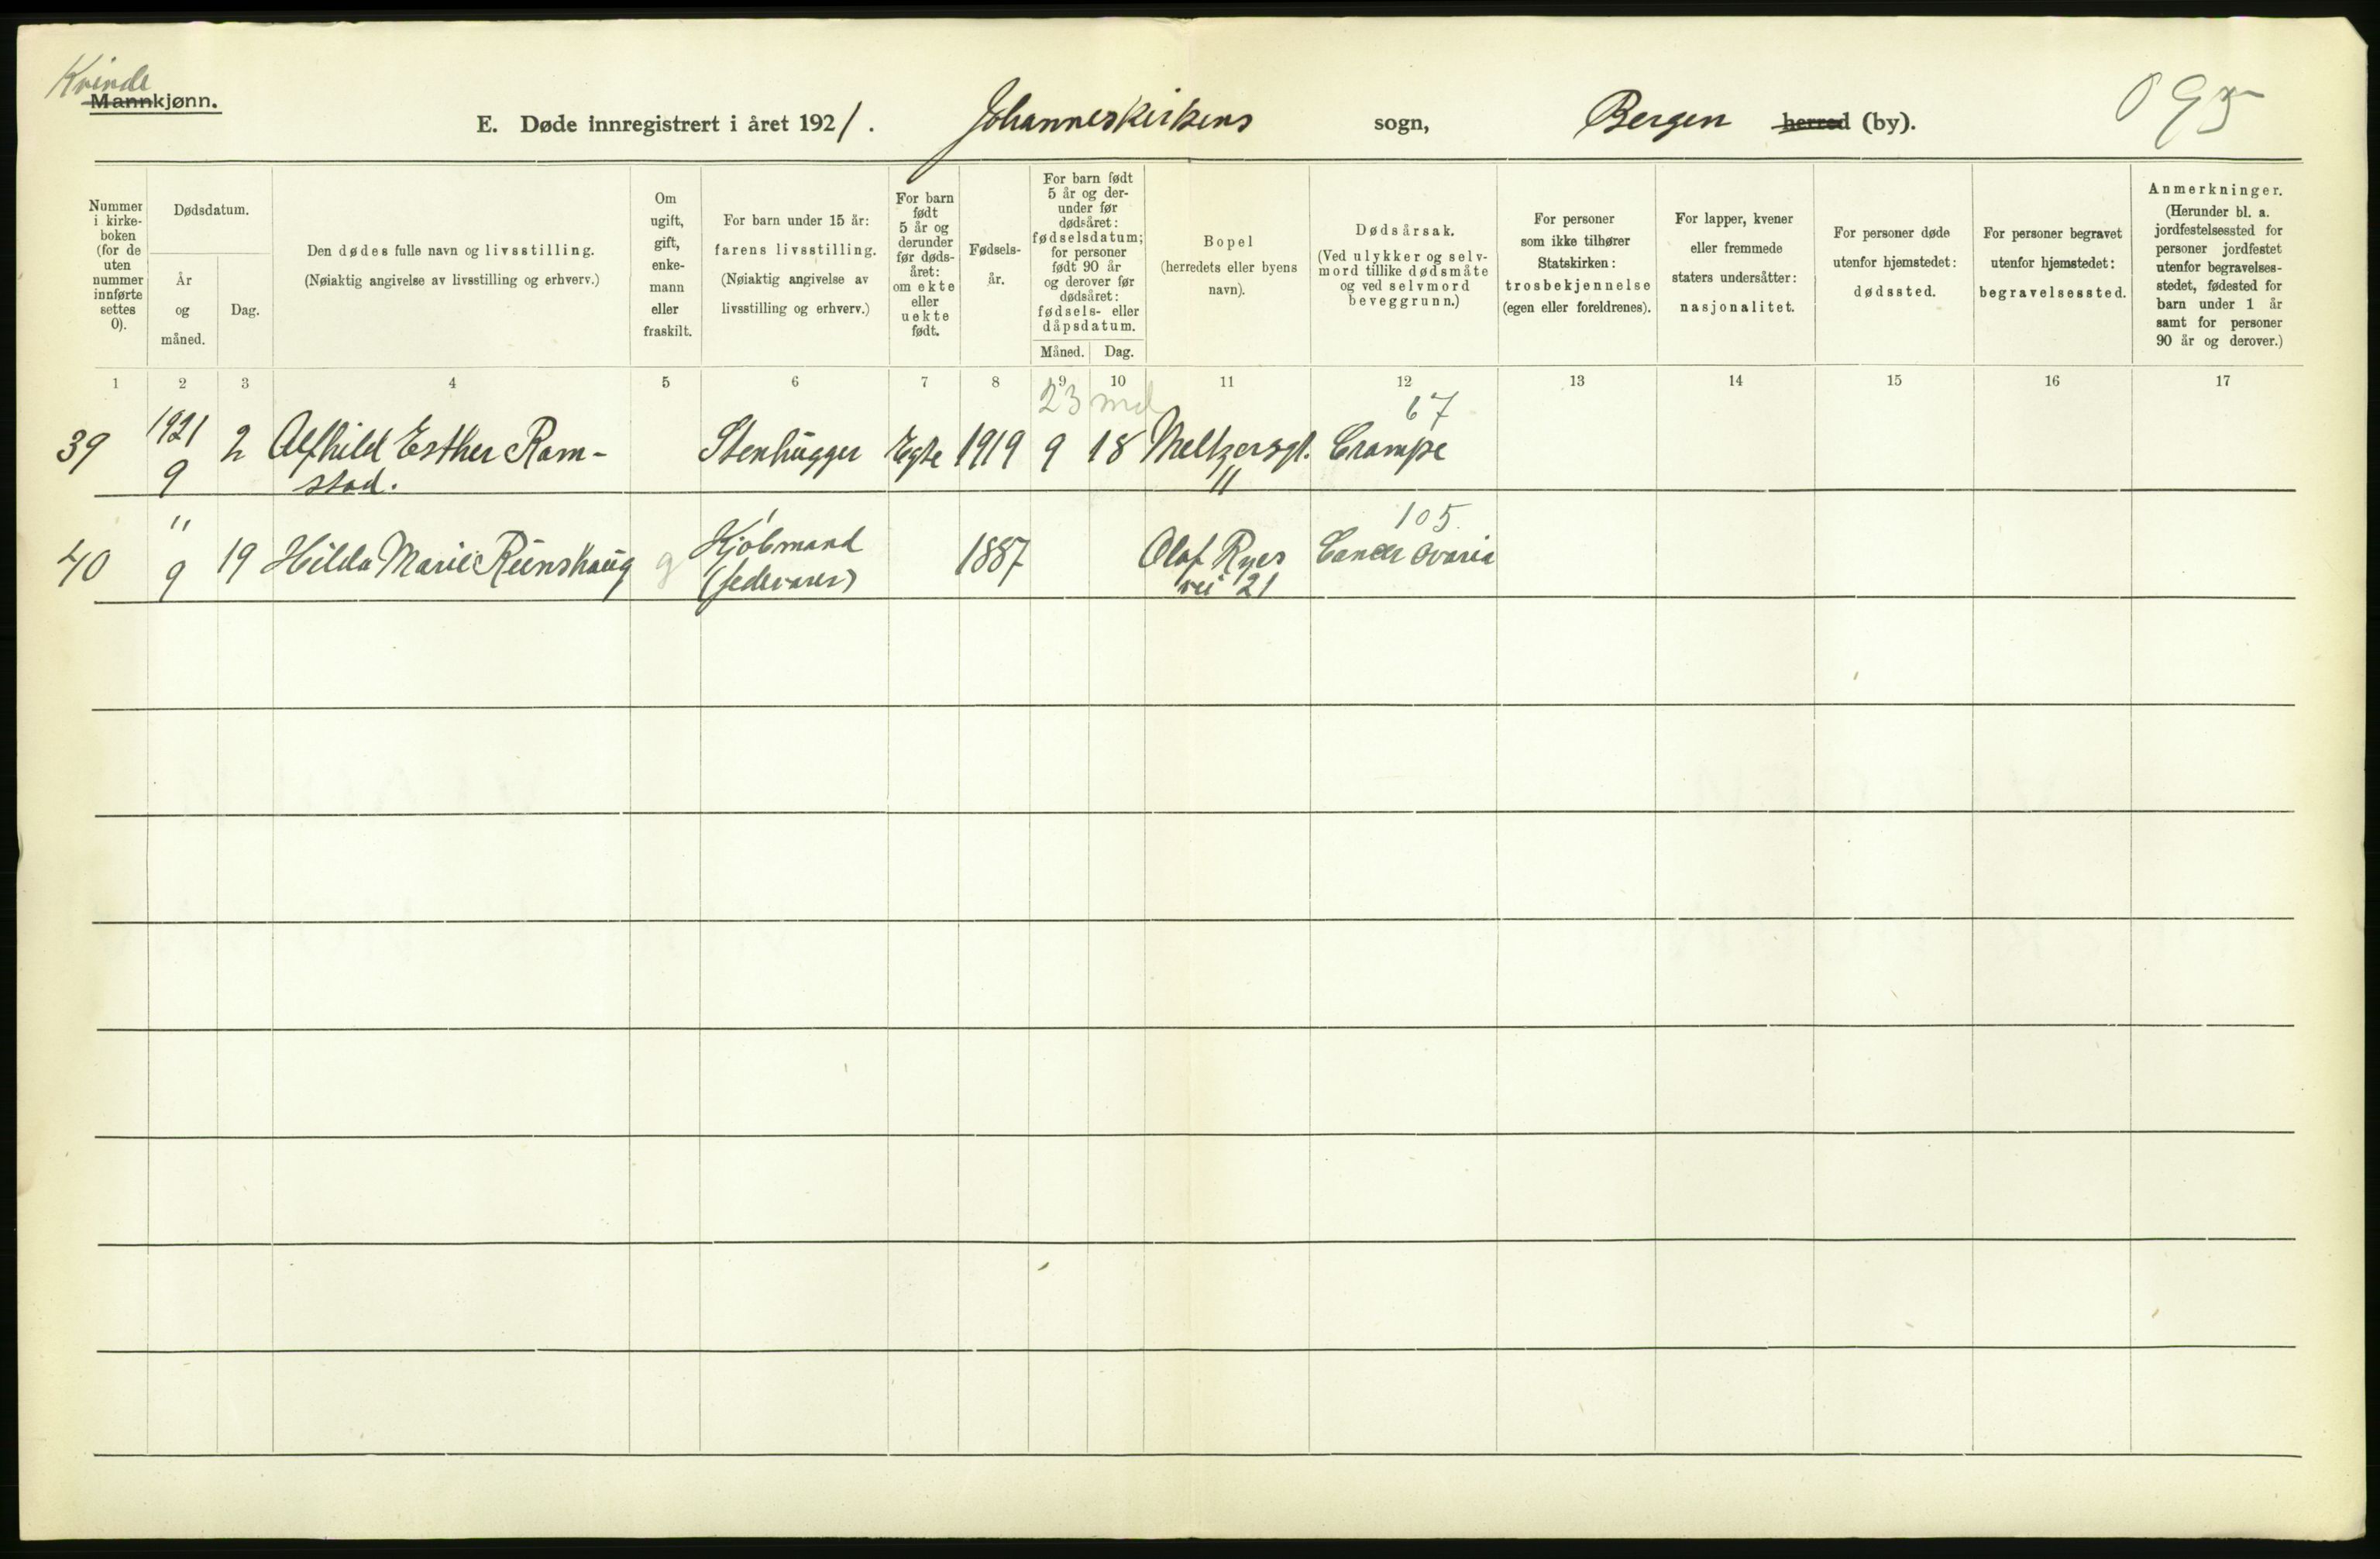 Kvinde
Mannkjønn.
E. Døde innregistrert i året 1921. Johanneskirkens sogn, Bergen herred (by).
095
Nummer i kirke-boken (for de uten nummer innførte settes 0).
Dødsdatum.
År og måned.
Dag.
Den dødes fulle navn og livsstilling.
(Nøiaktig angivelse av livsstilling og erhverv.)
Om ugift, gift, enke-mann eller fraskilt.
For barn under 15 år:
farens livsstilling.
(Nøiaktig angivelse av
livsstilling og erhverv.)
For barn født 5 år og derunder før døds-året: om ekte eller uekte født.
Fødsels-år.
For barn født 5 år og der-under før dødsåret: fødselsdatum; for personer født 90 år og derover før dødsåret: fødsels- eller dåpsdatum.
Måned. Dag.
Bopel
(herredets eller byens
navn).
Dødsårsak.
(Ved ulykker og selv-
mord tillike dødsmåte
og ved selvmord
beveggrunn.)
For personer
som ikke tilhører
Statskirken:
trosbekjennelse
(egen eller foreldrenes).
For lapper, kvener
eller fremmede
staters undersåtter:
nasjonalitet.
For personer døde
utenfor hjemstedet:
dødssted.
For personer begravet
utenfor hjemstedet:
begravelsessted.
Anmerkninger.
(Herunder bl. a.
jordfestelsessted for
personer jordfestet
utenfor begravelses-
stedet, fødested for
barn under 1 år
samt for personer
90 år og derover.)
1 2 3 4 5 6 7 8 9 10 11 12 13 14 15 16 17
23 md 67
39 1921 2 Alfhild Esther Ram- Stenhugger Egte 1919 9 18 Meltzersgt. Crampe
9 stad. 11
" 105.
40 9 19 Hilda Marie Runshaug g Kjøbmand 1887 Olaf Ryes Cancer ovaria
(fedevarer) vei 21